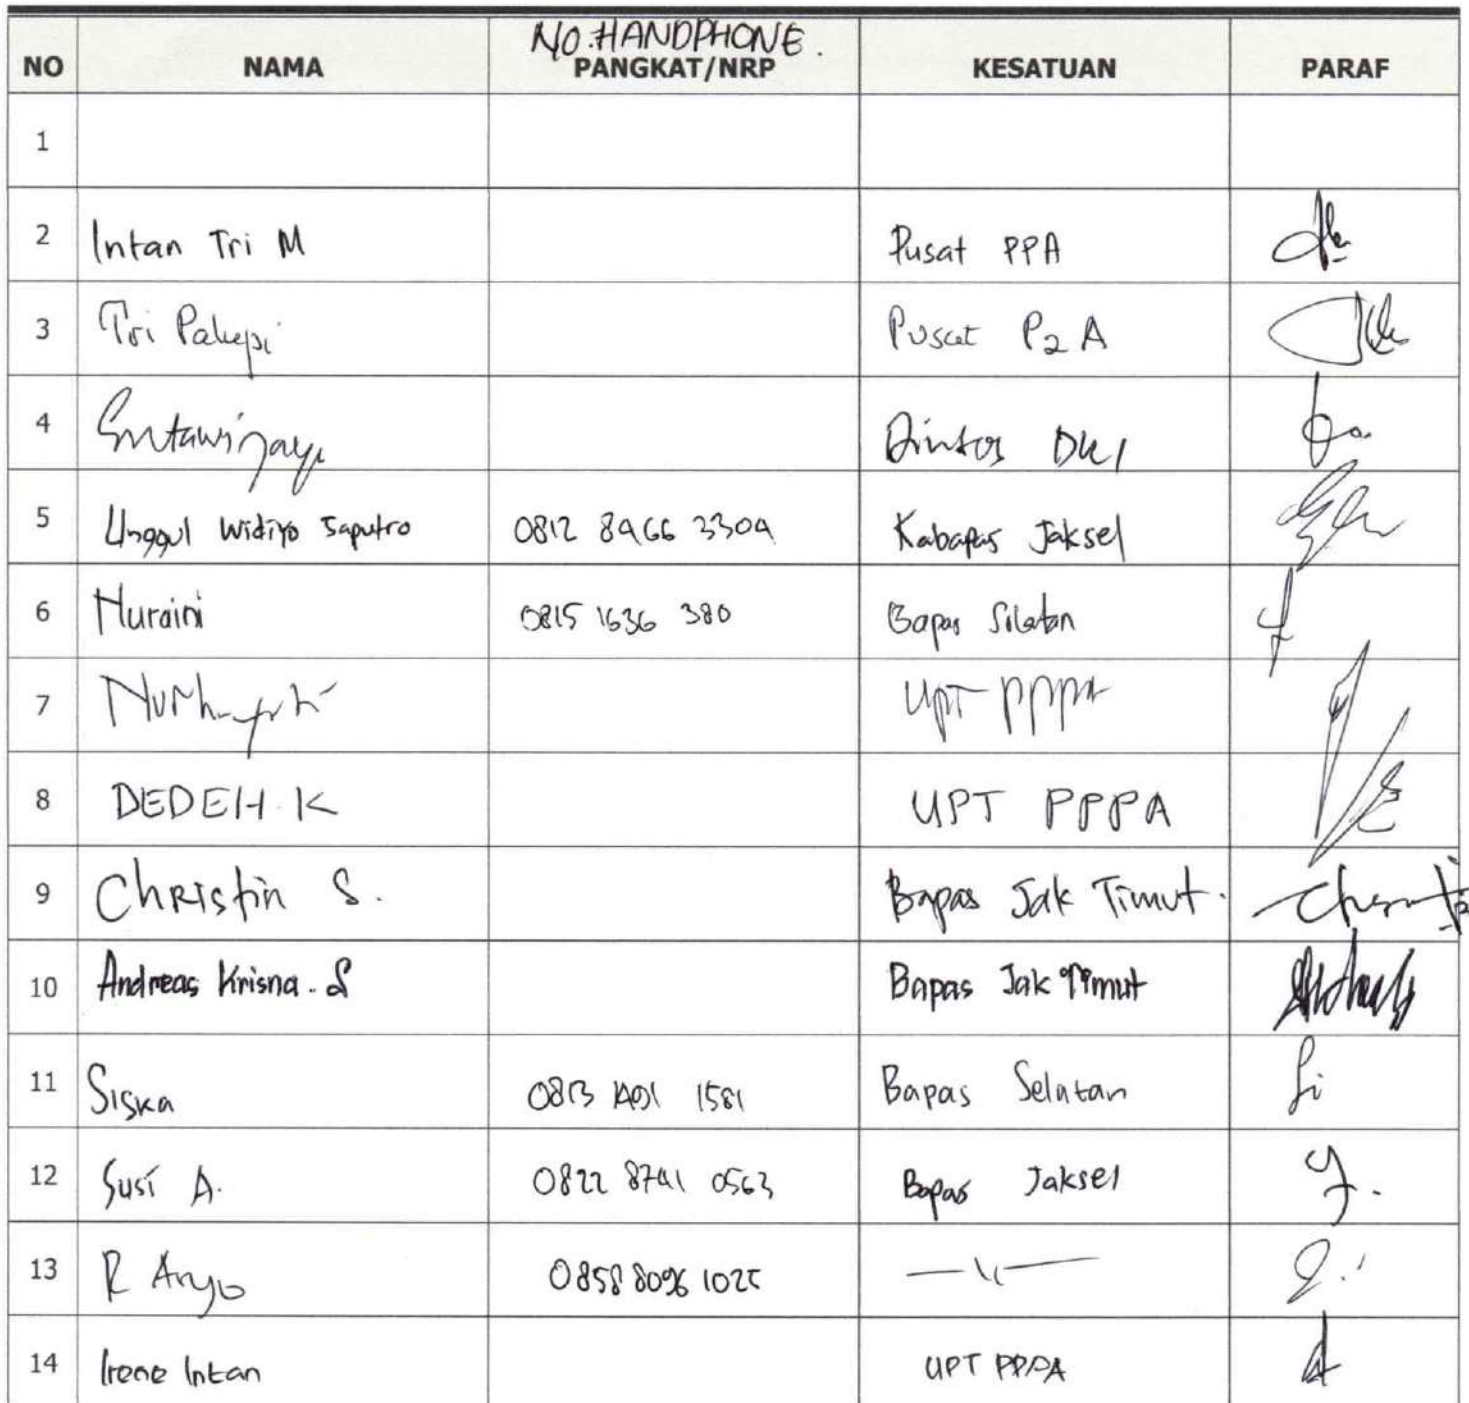 NO NAMA NO. HANDPHONE. PANGKAT/NRP KESATUAN PARAF
1
2 Intan Tri M Pusat PPA
3 Tri Palupi Pusat P2A
4 Dinsos DKI
5 Unggul Widiyo Saputro 0812 8966 3309 Kabapas Jaksel
6 Nuraini 0815 1636 380 Bapas Selatan
7 UPT PPPA
8 DEDEH. K UPT PPPA
9 Christin S. Bapas Jak Timut.
10 Andreas Krisna. S Bapas Jak Timut
11 Siska 0813 1581 Bapas Selatan
12 Susi A. 0822 8741 0563 Bapas Jaksel
13 R Aryo 0858 8096 1025 — 〃 —
14 Irene Intan UPT PPPA